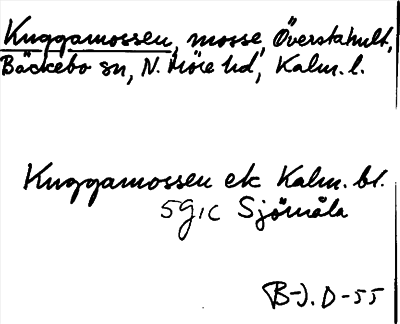 Kuggamossen, mosse, Överstahult,
Bäckebo sn, N. Möre hd, Kalm. l.
Kuggamossen ek Kalm. bl.
5g,c Sjömåla
B-J. D-55